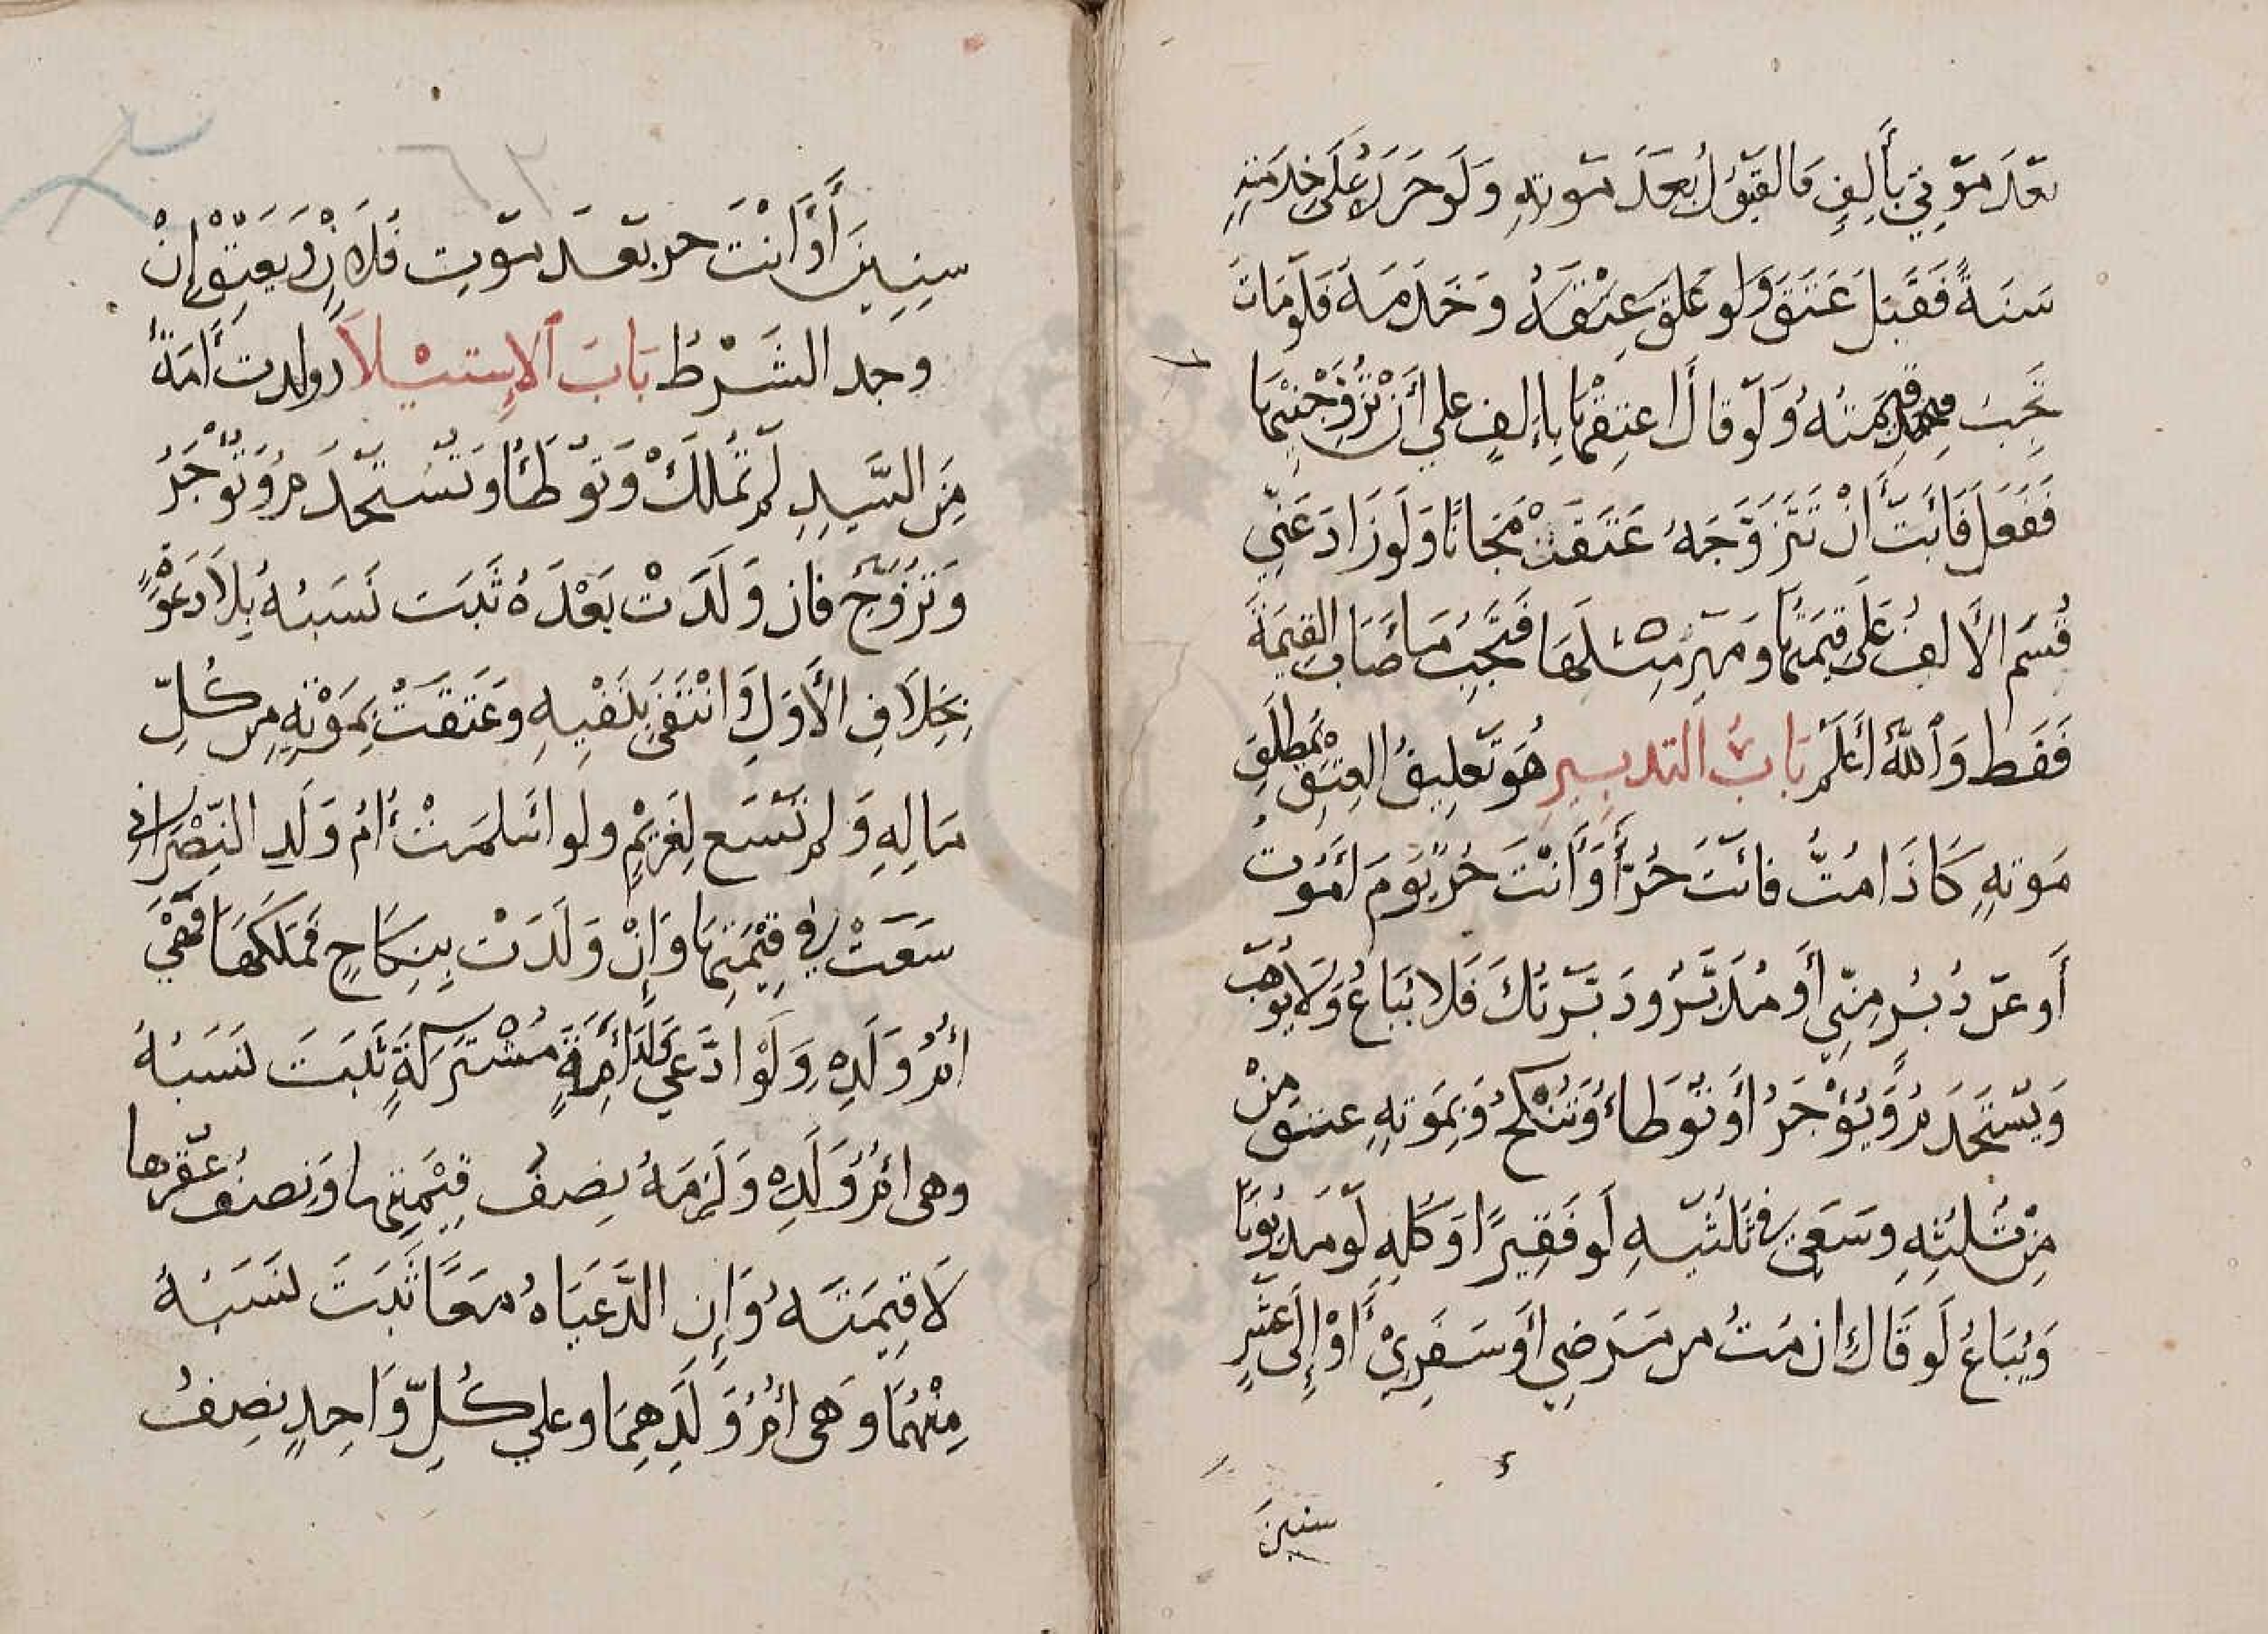 بعد موتي بألف فالقبول بعد موته ولو حرره علي خدمته
سنة فقبل عتق ولو علق عتقه وخدمه فلو مات
تجب قيمته ولو قال اعتقها بإلف علي أن تزوجنيها
ففعل فأبت أن تتزوجه عتقت مجانا ولو زاد عني
قسم الألف على قيمتها ومهر مثلها فتجب ما أصاب القيمة
فقط والله أعلم باب التدبير هو تعليق العتق بمطلق
موته كاذا مت فانت حر أو أنت حر يوم أموت
أو عن دبر مني أو مدبر ودبرتك فلا يباع ولا يوهب
ويستخدم ويؤجر أو توطأ وتنكح وبموته عتق من
من ثلثه وسعي في ثلثيه لو فقيرا وكله لو مديونا
ويباع لو قال ان مت من مرضي أو سفري أو إلى عشر
سنين
٦٢
سنين أو أنت حر بعد موت فلان ويعتق إن
وجد الشرط باب الإستيلاد ولدت أمة
من السيد لم تملك وتوطأ وتستخدم وتؤجر
وتزوج فان ولدت بعده ثبت نسبه بلا دعوة
بخلاف الأول وانتفى بنفيه وعتقت بموته من كل
ماله ولم تسع لغريم ولو اسلمت أم ولد النصراني
سعت في قيمتها وإن ولدت بنكاح فملكها فهي
أم ولده ولو ادعي ولد أمة مشتركة ثبت نسبه
وهي أم ولده ولزمه نصف قيمتها ونصف عقرها
لا قيمته وإن ادعياه معا ثبت نسبه
منهما وهي أم ولدهما وعلي كل واحد نصف